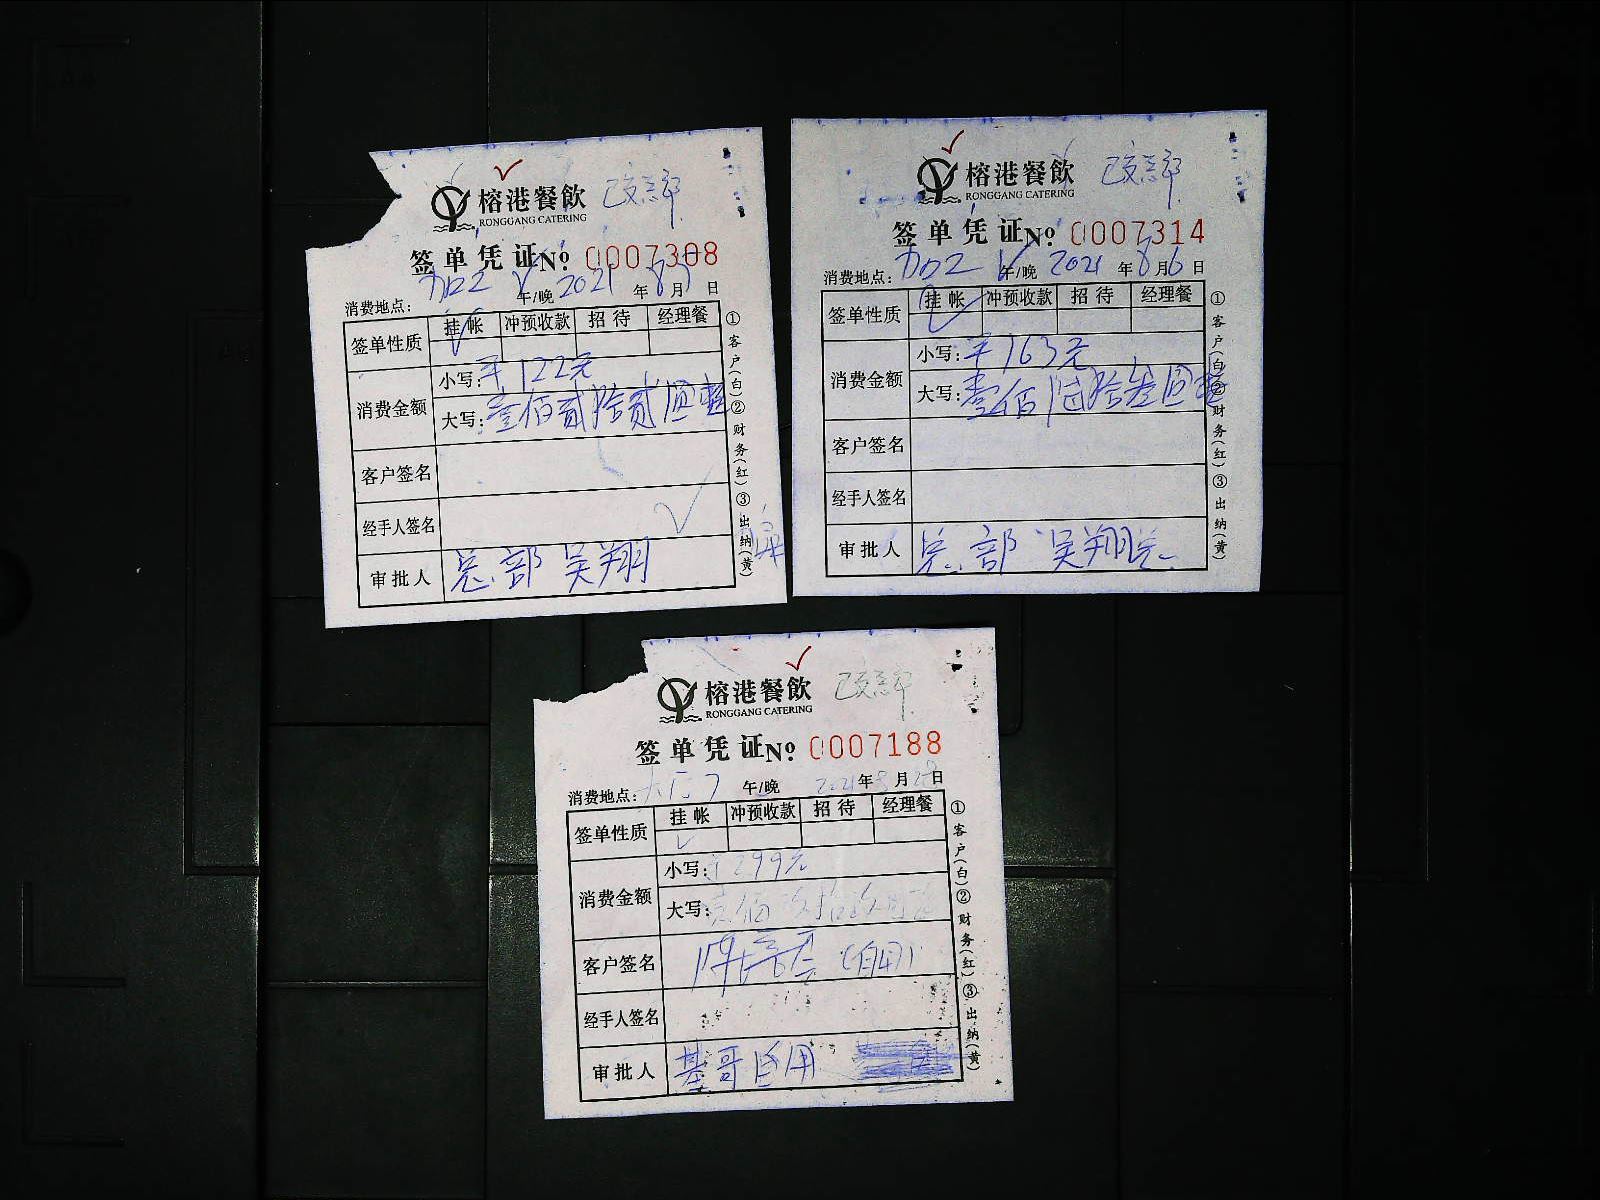 榕港餐飲 已交总部
RONGGANG CATERING
签单凭证 № 0007308
消费地点: 加02 午/晚 2021年8月7日
签单性质 挂帐 冲预收款 招待 经理餐
消费金额 小写: 122元
大写: 壹佰贰拾贰圆整
客户签名
经手人签名
审批人 总部 吴翔
①客户(白)②财务(红)③出纳(黄)
榕港餐飲 已交总部
RONGGANG CATERING
签单凭证 № 0007314
消费地点: 加02 午/晚 2021年8月6日
签单性质 挂帐 冲预收款 招待 经理餐
消费金额 小写: 163元
大写: 壹佰陆拾叁圆整
客户签名
经手人签名
审批人 总部 吴翔
①客户(白)②财务(红)③出纳(黄)
榕港餐飲 已交总部
RONGGANG CATERING
签单凭证 № 0007188
消费地点: 午/晚 2021年8月 日
签单性质 挂帐 冲预收款 招待 经理餐
消费金额 小写: 299元
大写:
客户签名 (自用)
经手人签名
审批人 基哥自用
①客户(白)②财务(红)③出纳(黄)